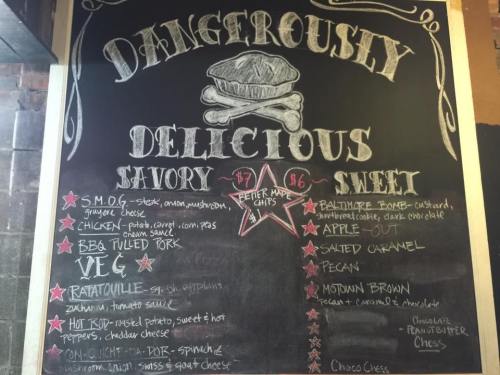 DANGEROUSLY
DELICIOUS
SAVORY
S.M.O.G. - steak, onion, mushroom,
gruyere cheese
CHICKEN - potato, carrot, corn, peas
cream sauce
BBQ PULLED PORK
VEG
RATATOUILLE - squash, eggplant,
zucchini, tomato sauce
HOT ROD - roasted potato, sweet & hot
peppers, cheddar cheese
DOR - spinach &
mushroom, onion, swiss & goat cheese
$7 $6
BETTER MADE
CHIPS
SWEET
BALTIMORE BOMB - custard,
shortbread cookie, dark chocolate
APPLE - OUT
SALTED CARAMEL
PECAN
MOTOWN BROWN
pecan + caramel & chocolate
CHOCOLATE
- PEANUT BUTTER
Chess
Choco Chess